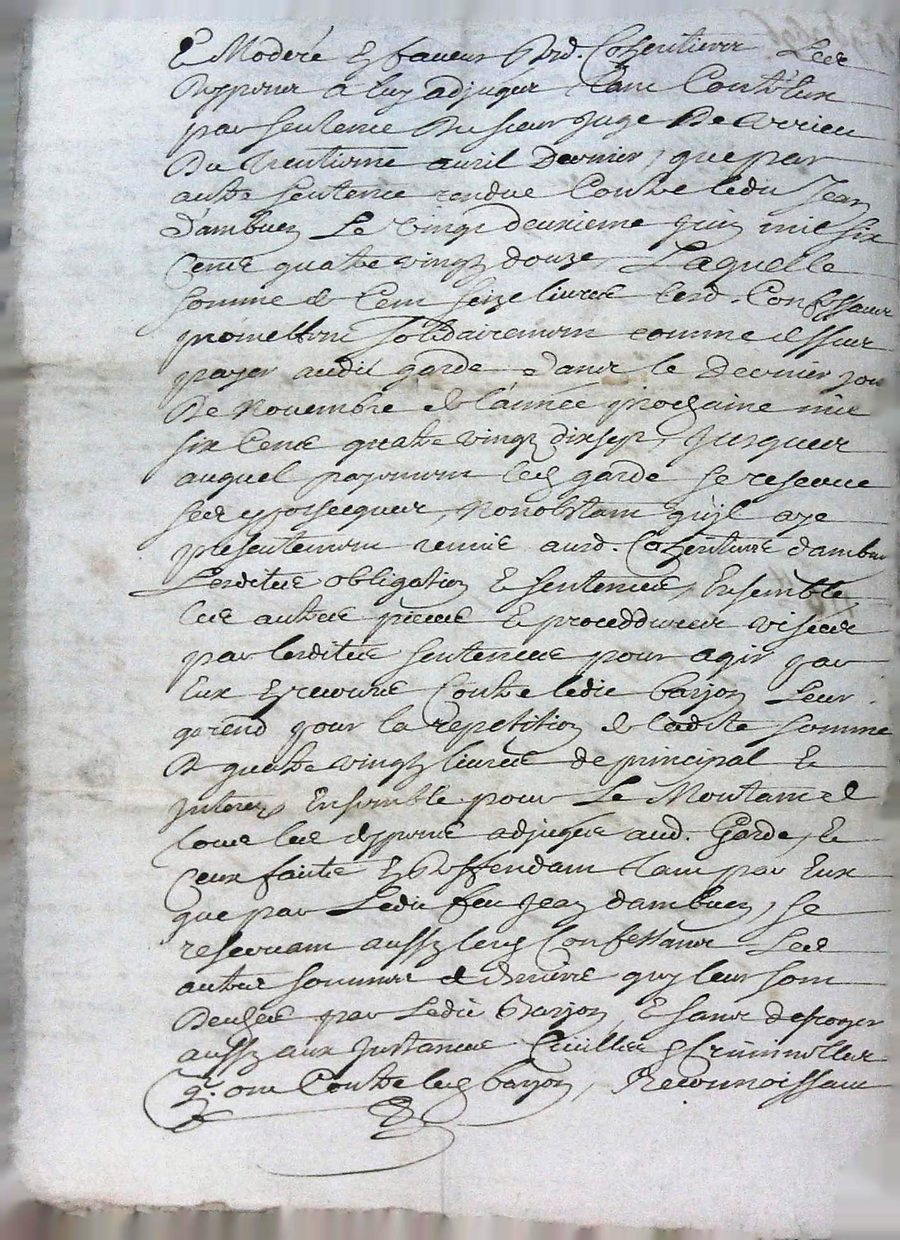 & Moderé en faveur dud. Cohentiever Les
despens a luy adjuges tant Contr'eux
par sentence du sieur Juge de Vrieu
du trentieme avril dernier, que par
autre sentence rendue Contre ledit Jean
d'ambuen Le vingt deuxieme juin mil six
Cens quatre vingtz douze, Laquelle
somme de Cent seize livres lesd. Confessans
promettent solidairement comme dessus
payer audit garde dans le dernier jour
de novembre de l'année prochaine mil
six Cens quatre vingtz dix sept, Jusques
auquel payement led. garde se reserve
ses yposeques, nonobstant qu'il aye
presentement remis aud. dambuen
Lesdites obligation & sentences, Ensemble
les autres pieces & proceddures visées
par lesdites sentences pour agir par
Eux & recours Contre ledit barjon Leur
garend pour la repetition de ladite somme
de quatre vingtz livres de principal &
Interez Ensemble pour Le Montant de
tous les despens adjugés aud. Garde, &
Ceux faits en deffendant tant par Eux
que par Ledit feu Jean dambuen, se
reservant aussy lesd. Confessans Les
autres sommes & deniers quy leur sont
deubes par Ledit Barjon, & sans desroger
aussy aux Instances Civilles & Criminelles
qu. ont Contre led. barjon, Reconnoissant